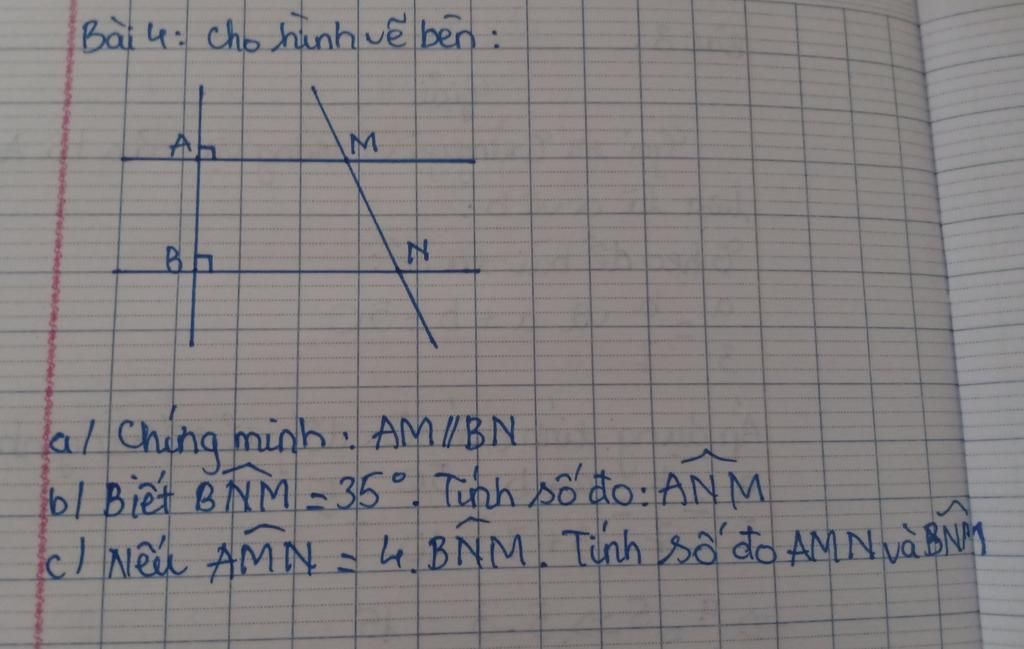 Bài 4: Cho hình vẽ bên:
A M
B N
a/ Chứng minh: AM//BN
b/ Biết BNM = 35°. Tính số đo: ANM
c/ Nếu AMN = 4. BNM. Tính số đo AMN và BNM